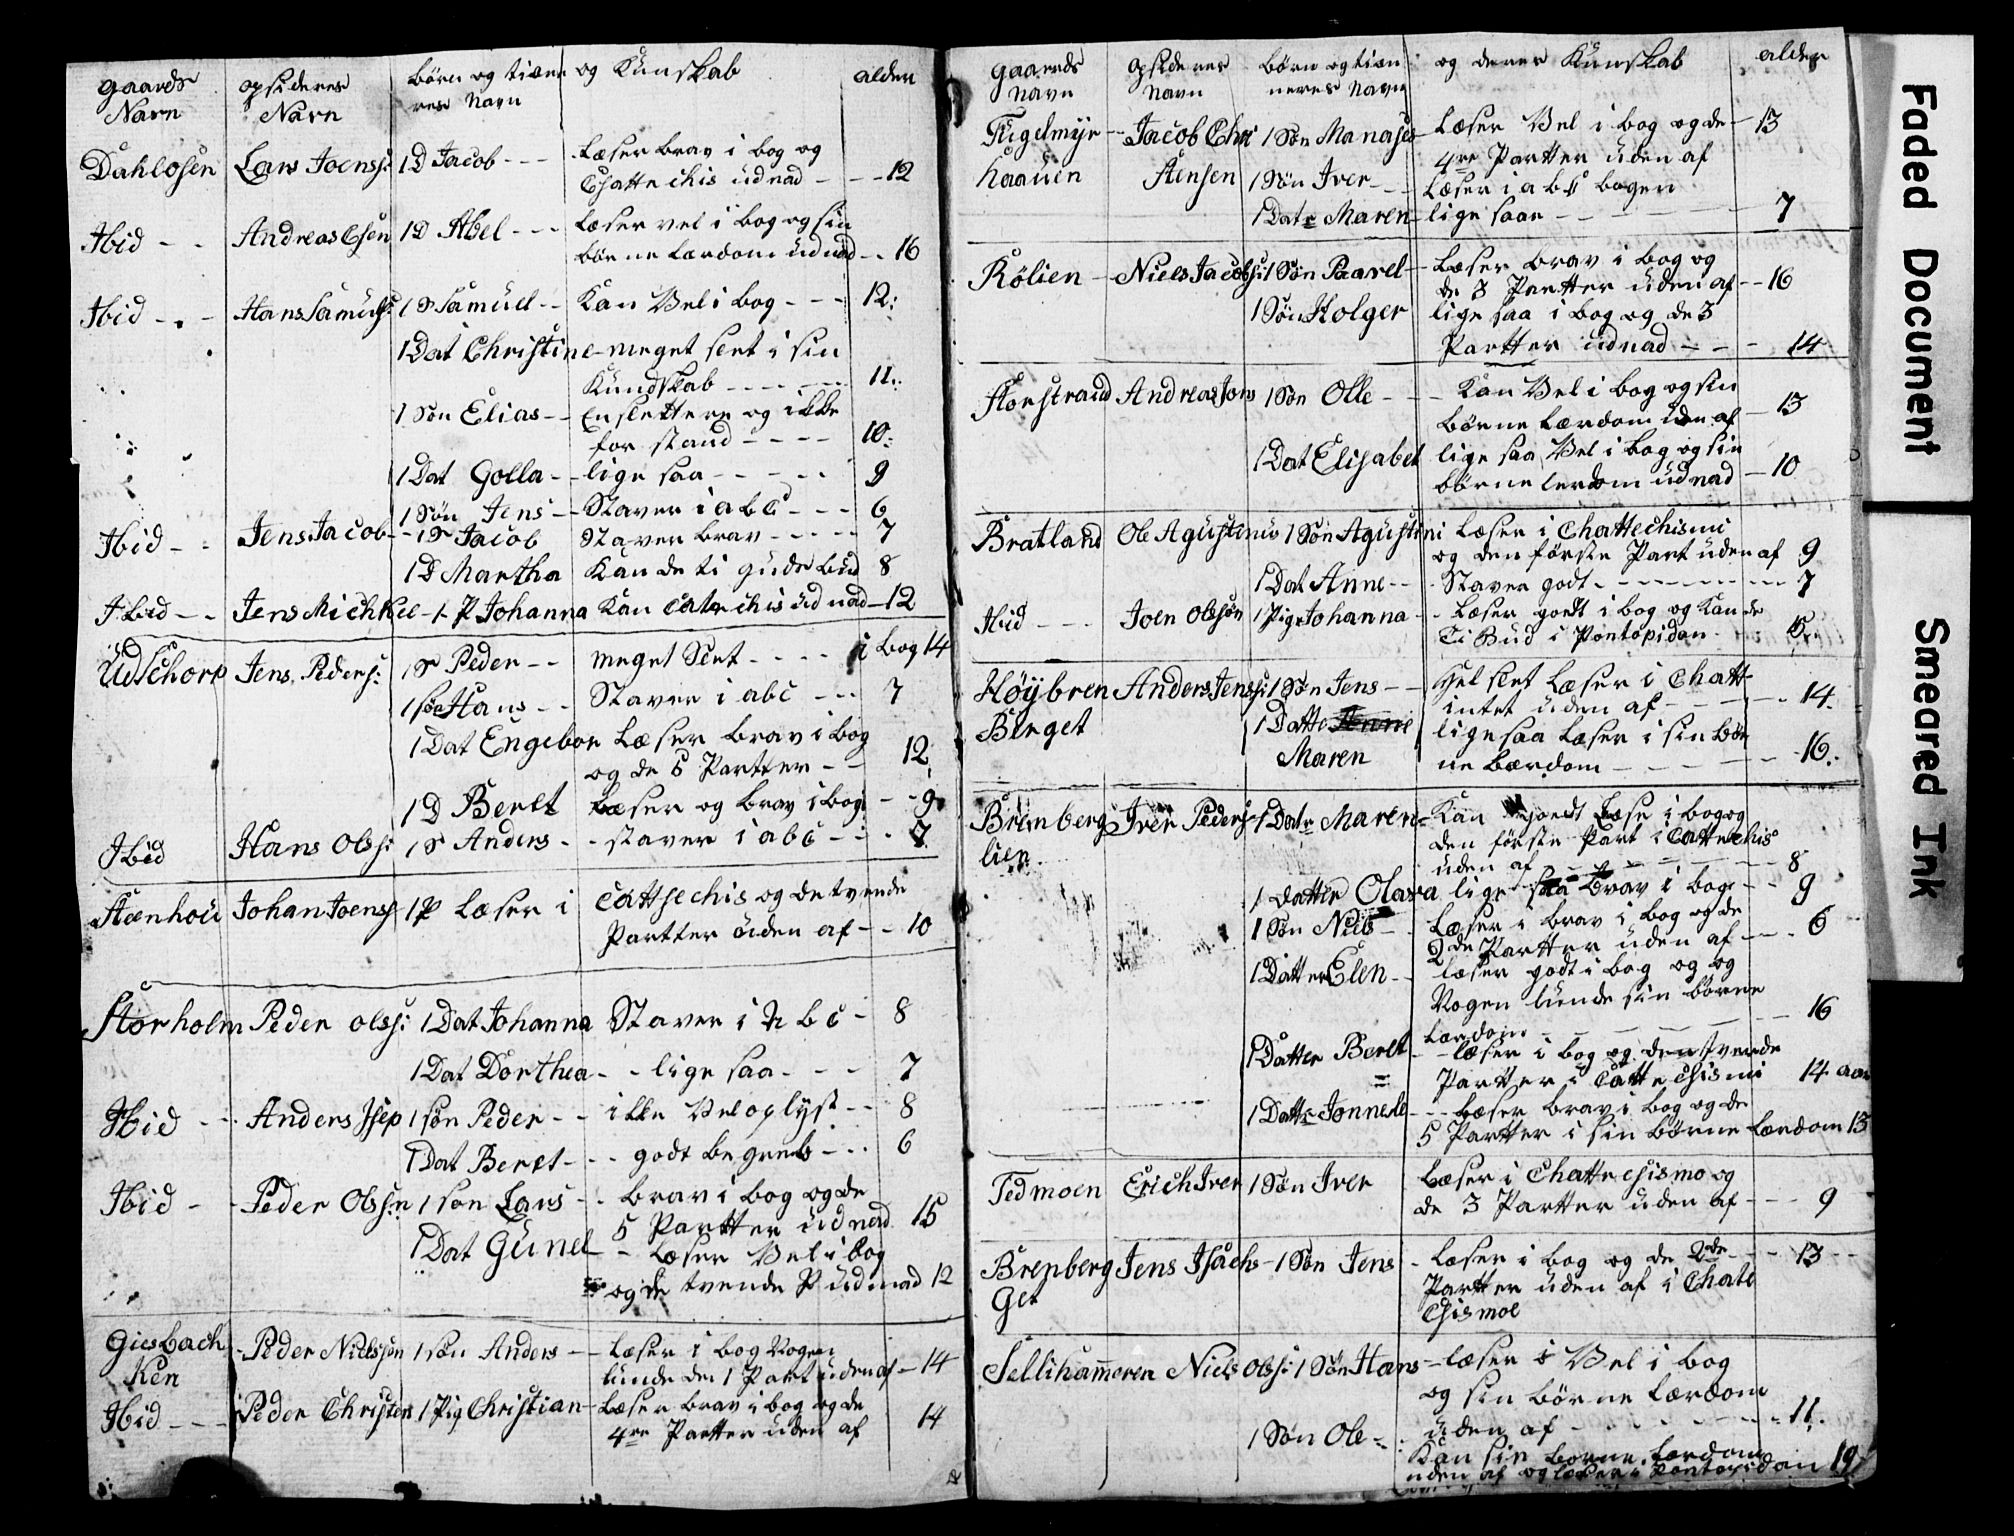 gaards opsideres børn og tiæne og Kunskab alder
Navn Navn res Navn
Dahlosen Lars Joenss: 1 D Jacob - - - Læser brav i bog og
Chattechis udnad - - - 12
Ibid - - Andreas Olsen 1 D Abel - - - læser vel i bog og sin
børne lærdom udnad - - 16
Ibid - - - Hans Samuels: 1 S Samuel - - Kan Vel i bog - - - 12:
1 Dat Christine - meget slet i sin
Kundskab - - - - - - 11:
1 Søn Elias - - En slettere og ikke
forstand - - - - 10:
1 Dat Golla - - lige saa - - - - - 9
1 Søn Jens - - Staver i abc - - - 6
Ibid - - Jens Jacob - - 1 S Jacob Staver brav - - - - - 7
1 D Martha Kan de ti guds bud 8
Ibid - - Jens Michkel - 1 P Johanna Kan Catechis udnad - 12
Udschorp Jens Peders: 1 S Peder - - meget Slet - - - - i bog 14
1 søn Hans - - Staver i abc - - - 7
1 Dat Engebor Læser brav i bog
og de 5 Partter - - 12
1 D Beret Læser og brav i bog - - 9
Ibid Hans Olss: 1 S Anders - - staver i abc - - - 7
Stenhou Johan Joenss 1 P læser i Cattsechis og de tvende
Partter uden af - - 10
Storholm Peder olss: 1 Dat Johanna Staver i A b c - 8
1 Dat Dorthea - - lige saa - - - 7
Ibid - - - Anders Jsep 1 søn Peder - - ikke Vel oplyst - - 8
1 Dat Beret - - - godt begreb - - - 6
Ibid - - Peder Olsen 1 søn Lars - - brav i bog og de
5 Partter udnad 15
1 Dat Gunel - - Læser Vel i bog
og de tvende P udnad 12
Giesbach - Peder Nielssøn 1 søn Anders - - Læser i bog Nogen
Ken lunde den 1 Part uden af - 14
Ibid - - - Peder Christen 1 Pig Christian - Læser brav i bog og de
4re Partter uden af 14
gaards opsideres børn og tiæn og deres Kunskab alder
Navn Navn neres Navn
Fugelmyr - Jacob Chri 1 Søn Manases - Læser Vel i bog og de - 13
4re Partter uden af
haauen stensen 1 Søn Iver - - - Læser i abc bogen
1 Datr Maren - lige saa - - - - - - - 7
Rølien - Niels Jacobs: 1 Søn Paavel - Læser brav i bog og
de 3 Partter uden af - - 16
1 Søn Holger lige saa i bog og de 3
Partter udnad - - - 14
Storstrand Andreas Jons 1 Søn Olle - - - Kan Vel i bog og sin
børne Lærdom uden af - 13
1 Dat Elisabet lige saa Vel i bog og sin
børne lerdom udnad - 10
Bratland Ole Agustinus 1 Søn Agustini Læser i Chattechismi
og den første Part uden af 9
1 Dat Anne - - Staver godt - - - - - - - - 7
Ibid - - - Joen Olssøn 1 Pige Johanna - - Læser godt i bog og Kan de
Ti Bud i Pontopidan - - 15
Høybren Anders Jenss: 1 Søn Jens - - Hel slet læser i Chatt
intet uden af - - - - - - 14
Berget 1 Datte Anne lige saa læser i sin bør
Maren ne Lærdom - - - - - - 16:
Bremberg Iver Peders 1 Datr Maren - Kan godt Læse i bog og
lien den første Part i Cattechis
uden af - - - - - - 8
1 datter Olava lige saa brav i bog - - 9
1 Søn Niels - - Læser i brav i bog og de
2de Partter uden af - - - 6
1 Datter Elen - - læser godt i bog og og
Nogen lunde sin børne
Lærdom - - - - - - 16
1 Datter Beret - - læser i bog og den tvende
= Partter i Cattechismi 14 aar
1 Datte Jonnele - - - Læser brav i bog og de
5 Partter i sin børne Lærdom 13
Tedmoen Erich Iver 1 Søn Iver Læser i Chattechismo og
de 3 Partter uden af - - - 9
Brenberg Jens Jsachs - 1 Søn Jens - Læser i bog og de 2de - - - 13
Get Partter uden af i Chate
Chismoe
Sellihammeren Niels Olss: 1 Søn Hans - læser Vel i bog
og sin børne Lærdom
uden af - - - - - - - 11:
1 Søn Ole - - Kan sin børne lærdom
uden af og læser i Pontopidan 19
Faded Document
Smeared Ink